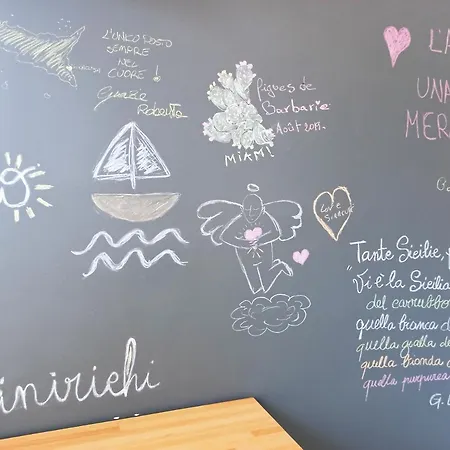 L'UNICO POSTO
SEMPRE
NEL
CUORE!
Grazie
Roberta
Figues de
Barbarie
Août 2017.
MIAM!
L'A
UNA
MER
Love
Tante Sicilie,
"Vi è la Sicilia
del carrubbo
quella bianca d
quella gialla de
quella bionda d
quella purpurea
G. B
inirichi